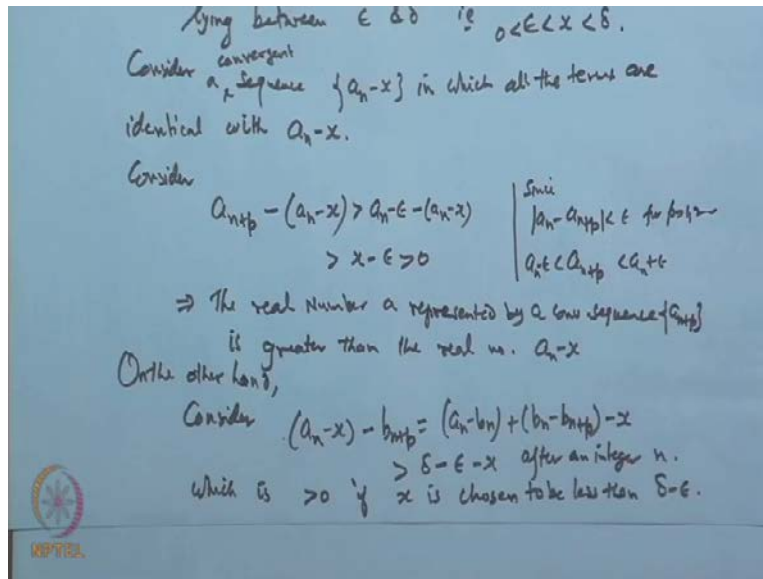 lying between ϵ & δ ie 0<ϵ<x<δ.
Consider a convergent sequence {aₙ-x} in which all the terms are
identical with aₙ-x.
Consider
aₙ₊ₚ - (aₙ-x) > aₙ-ϵ-(aₙ-x)
> x-ϵ >0
Since
|aₙ-aₙ₊ₚ|<ϵ for
aₙ-ϵ<aₙ₊ₚ<aₙ+ϵ
⇒ The real Number a represented by a conv sequence {aₙ₊ₚ}
is greater than the real no. aₙ-x
On the other hand,
Consider (aₙ-x) - bₙ₊ₚ = (aₙ-bₙ)+(bₙ-bₙ₊ₚ)-x
> δ-ϵ-x after an integer n.
which is >0 if x is chosen to be less than δ-ϵ.
NPTEL